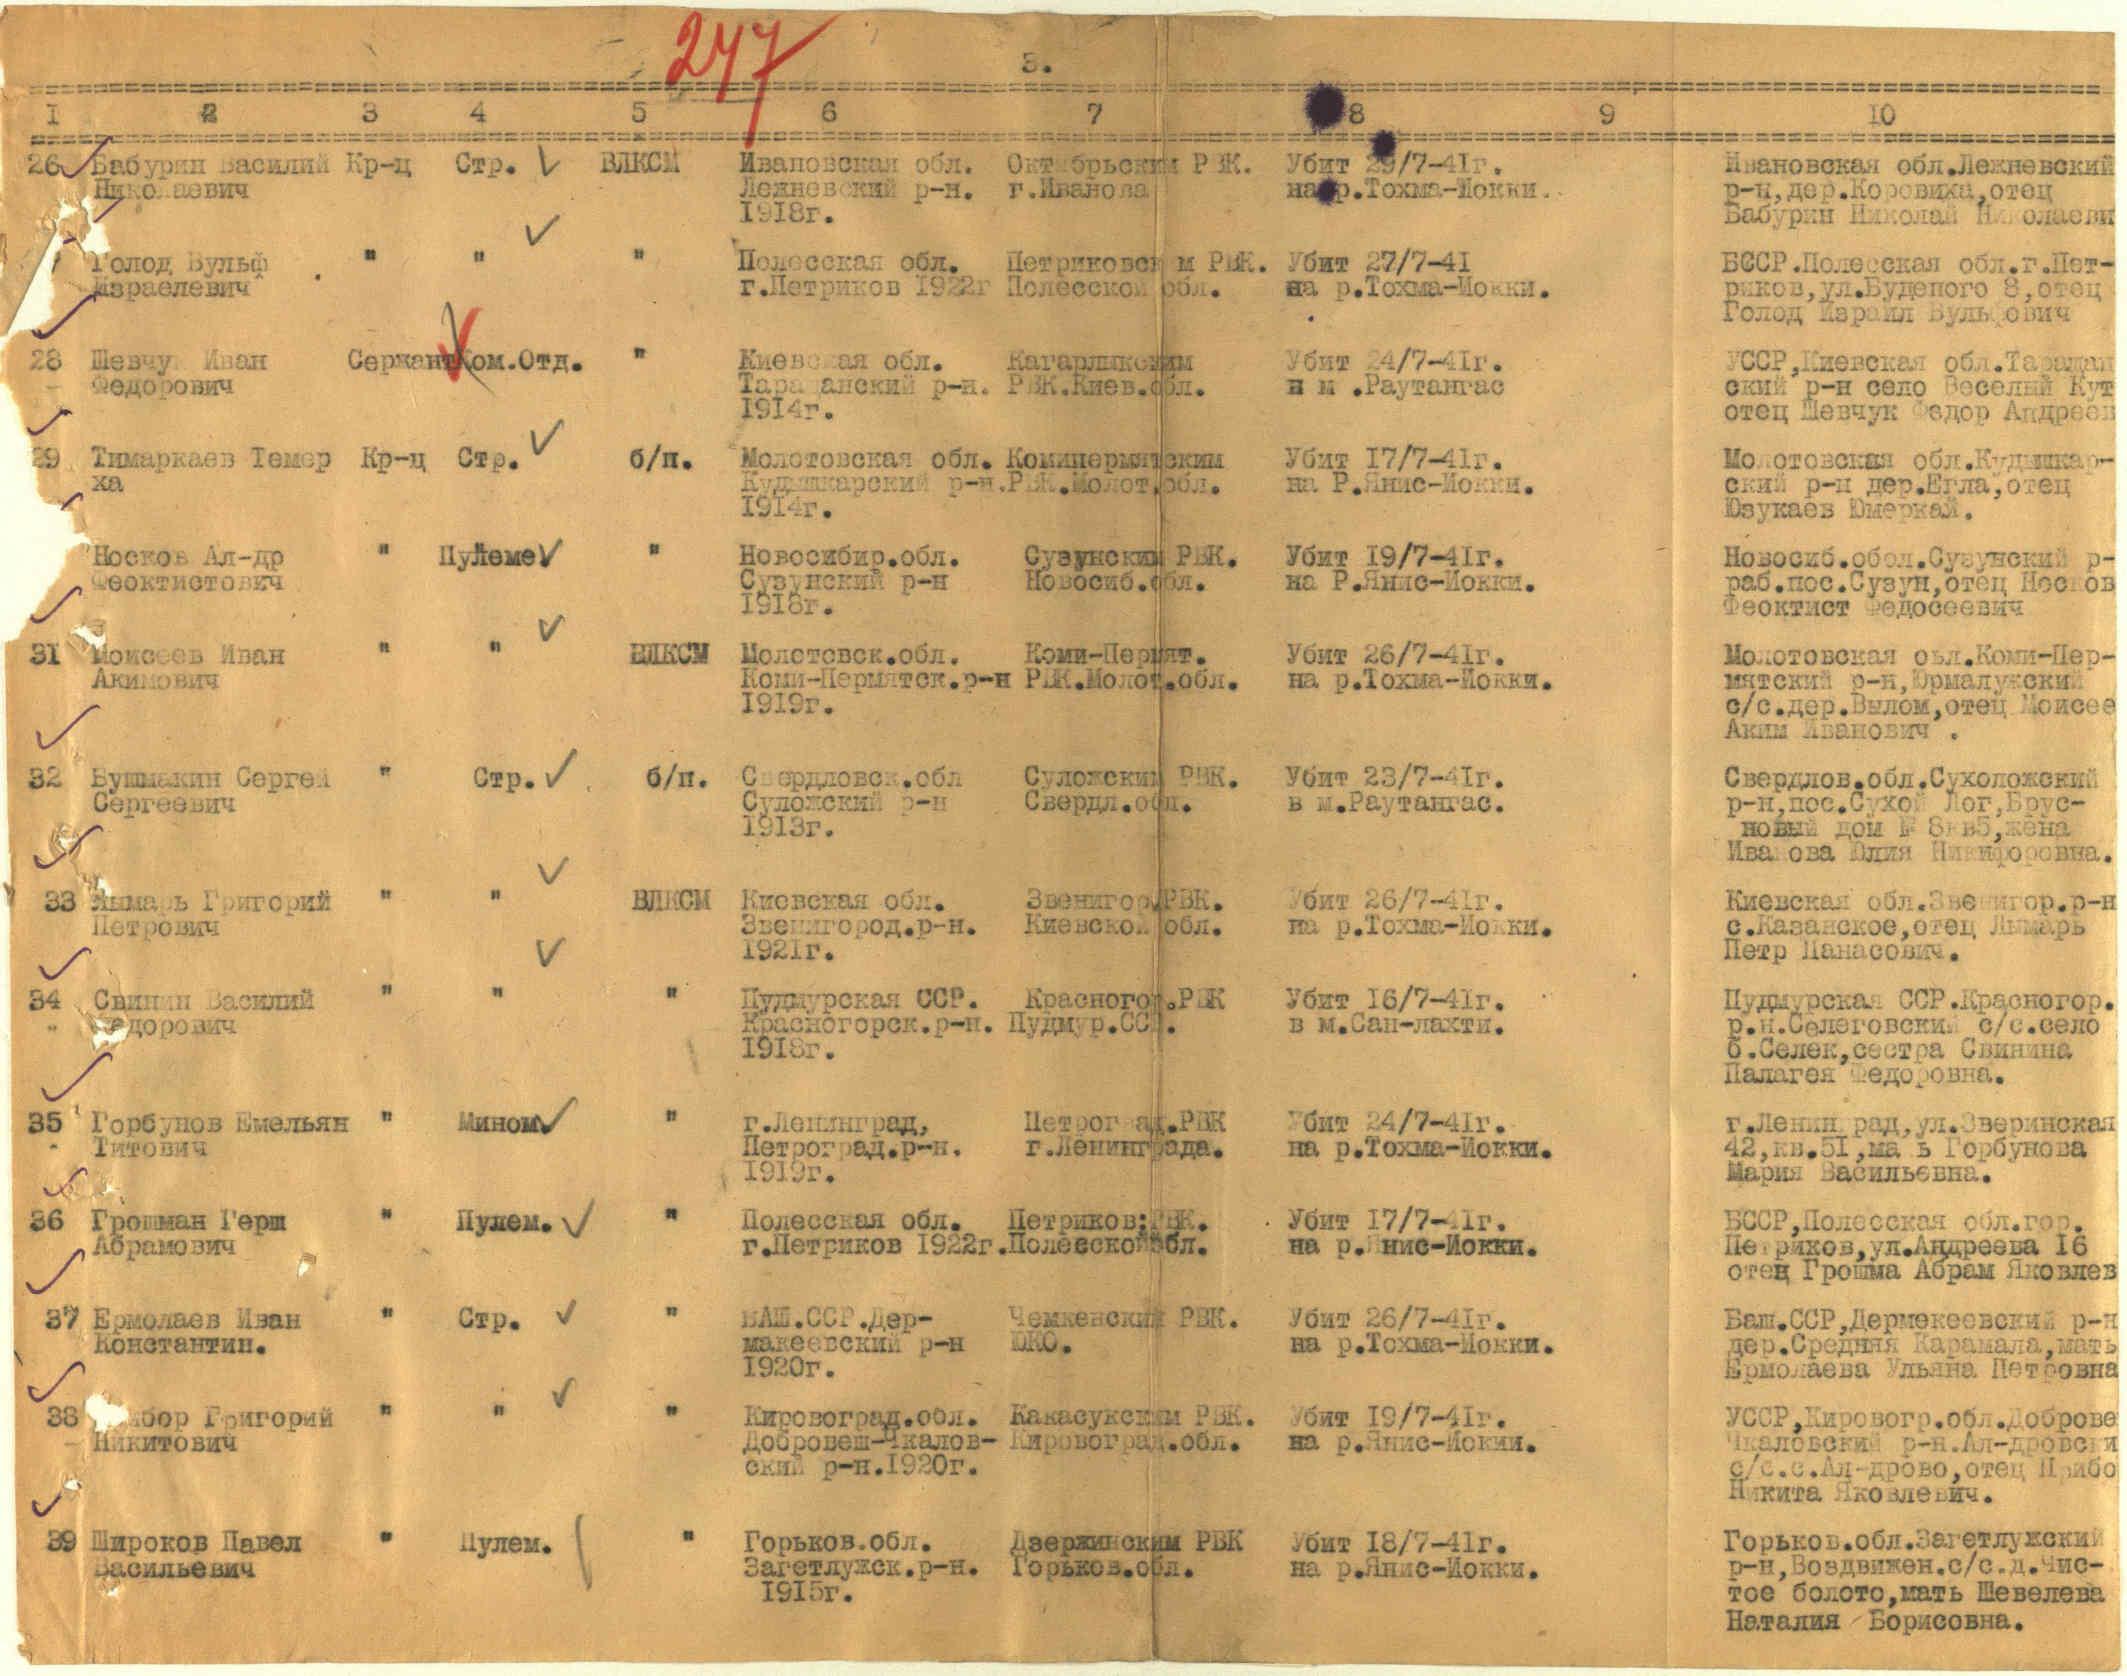 247
3.
1 2 3 4 5 6 7 8 9 10
26 Бабурин Василий Кр-ц Стр. ВЛКСМ Ивановская обл. Октябрьским РВК. Убит 29/7-41г. Ивановская обл.Лежневский
Николаевич Лежневский р-н. г.Иванова на р.Тохма-Иокки. р-н,дер.Коровиха,отец
1918г. Бабурин Николай Николаеви
Голод Вульф " " " Полесская обл. Петриковским РВК. Убит 27/7-41 БССР.Полесская обл.г.Пет-
Израелевич г.Петриков 1922г Полесской обл. на р.Тохма-Иокки. риков,ул.Буденого 8,отец
Голод Израил Вульфович
28 Шевчук Иван Сержант Ком.Отд. " Киевская обл. Кагарлыкским Убит 24/7-41г. УССР,Киевская обл.Таращан
Федорович Таращанский р-н. РВК.Киев.обл. в м .Раутангас ский р-н село Веселый Кут
1914г. отец Шевчук Федор Андреев
29 Тимаркаев Темер Кр-ц Стр. б/п. Молотовская обл. Комипермятским Убит 17/7-41г. Молотовская обл.Кудышкар-
ха Кудышкарский р-н. РВК.Молот.обл. на Р.Янис-Иокки. ский р-н дер.Егла,отец
1914г. Юзукаев Юмеркай.
Носков Ал-др " Пулеме " Новосибир.обл. Сузунским РВК. Убит 19/7-41г. Новосиб.обол.Сузунский р-
Феоктистович Сузунский р-н Новосиб.обл. на Р.Янис-Иокки. раб.пос.Сузун,отец Носков
1918г. Феоктист Федосеевич
31 Моисеев Иван " " ВЛКСМ Молотовск.обл. Коми-Пермят. Убит 26/7-41г. Молотовская оьл.Коми-Пер-
Акимович Коми-Пермятск.р-н РВК.Молот.обл. на р.Тохма-Иокки. мятский р-н,Юрмалужский
1919г. с/с.дер.Вылом,отец Моисее
Аким Иванович .
32 Бушмакин Сергей " Стр. б/п. Свердловск.обл Суложским РВК. Убит 23/7-41г. Свердлов.обл.Сухоложский
Сергеевич Суложский р-н Свердл.обл. в м.Раутангас. р-н,пос.Сухой Лог,Брус-
1913г. новый дом № 8кв5,жена
Иванова Юлия Никифоровна.
33 Лымарь Григорий " " ВЛКСМ Киевская обл. Звенигор.РВК. Убит 26/7-41г. Киевская обл.Звенигор.р-н
Петрович Звенигород.р-н. Киевской обл. на р.Тохма-Иокки. с.Казанское,отец Лымарь
1921г. Петр Панасович.
34 Свинин Василий " " " Пудмурская ССР. Красногор.РВК Убит 16/7-41г. Пудмурская ССР.Красногор.
Федорович Красногорск.р-н. Пудмур.ССР. в м.Сан-лахти. р.н.Селеговский с/с.село
1918г. б.Селек,сестра Свинина
Палагея Федоровна.
35 Горбунов Емельян " Мином. " г.Ленинград, Петроград.РВК Убит 24/7-41г. г.Ленинград,ул.Зверинская
Титович Петроград.р-н. г.Ленинграда. на р.Тохма-Иокки. 42,кв.51,ма ь Горбунова
1919г. Мария Васильевна.
36 Грошман Герш " Пулем. " Полесская обл. Петриков;РВК. Убит 17/7-41г. БССР,Полесская обл.гор.
Абрамович г.Петриков 1922г. Полесской обл. на р.Янис-Иокки. Петрихов,ул.Андреева 16
отец Грошма Абрам Яковлев
37 Ермолаев Иван " Стр. " БАШ.ССР.Дер- Чемкенским РВК. Убит 26/7-41г. Баш.ССР,Дермекеевский р-н
Константин. макеевский р-н ЮКО. на р.Тохма-Иокки. дер.Средняя Карамала,мать
1920г. Ермолаева Ульяна Петровна
38 Григорий " " " Кировоград.обл. Какасукским РВК. Убит 19/7-41г. УССР,Кировогр.обл.Доброве
Никитович Добровеш-Чкалов- Кировоград.обл. на р.Янис-Иокии. Чкаловский р-н.Ал-дровски
ский р-н.1920г. с/с.с.Ал-дрово,отец Прибо
Никита Яковлевич.
39 Широков Павел " Пулем. " Горьков.обл. Дзержинским РВК Убит 18/7-41г. Горьков.обл.Загетлужский
Васильевич Загетлужск.р-н. Горьков.обл. на р.Янис-Иокки. р-н,Воздвижен.с/с.д.Чис-
1915г. тое болото,мать Шевелева
Наталия Борисовна.